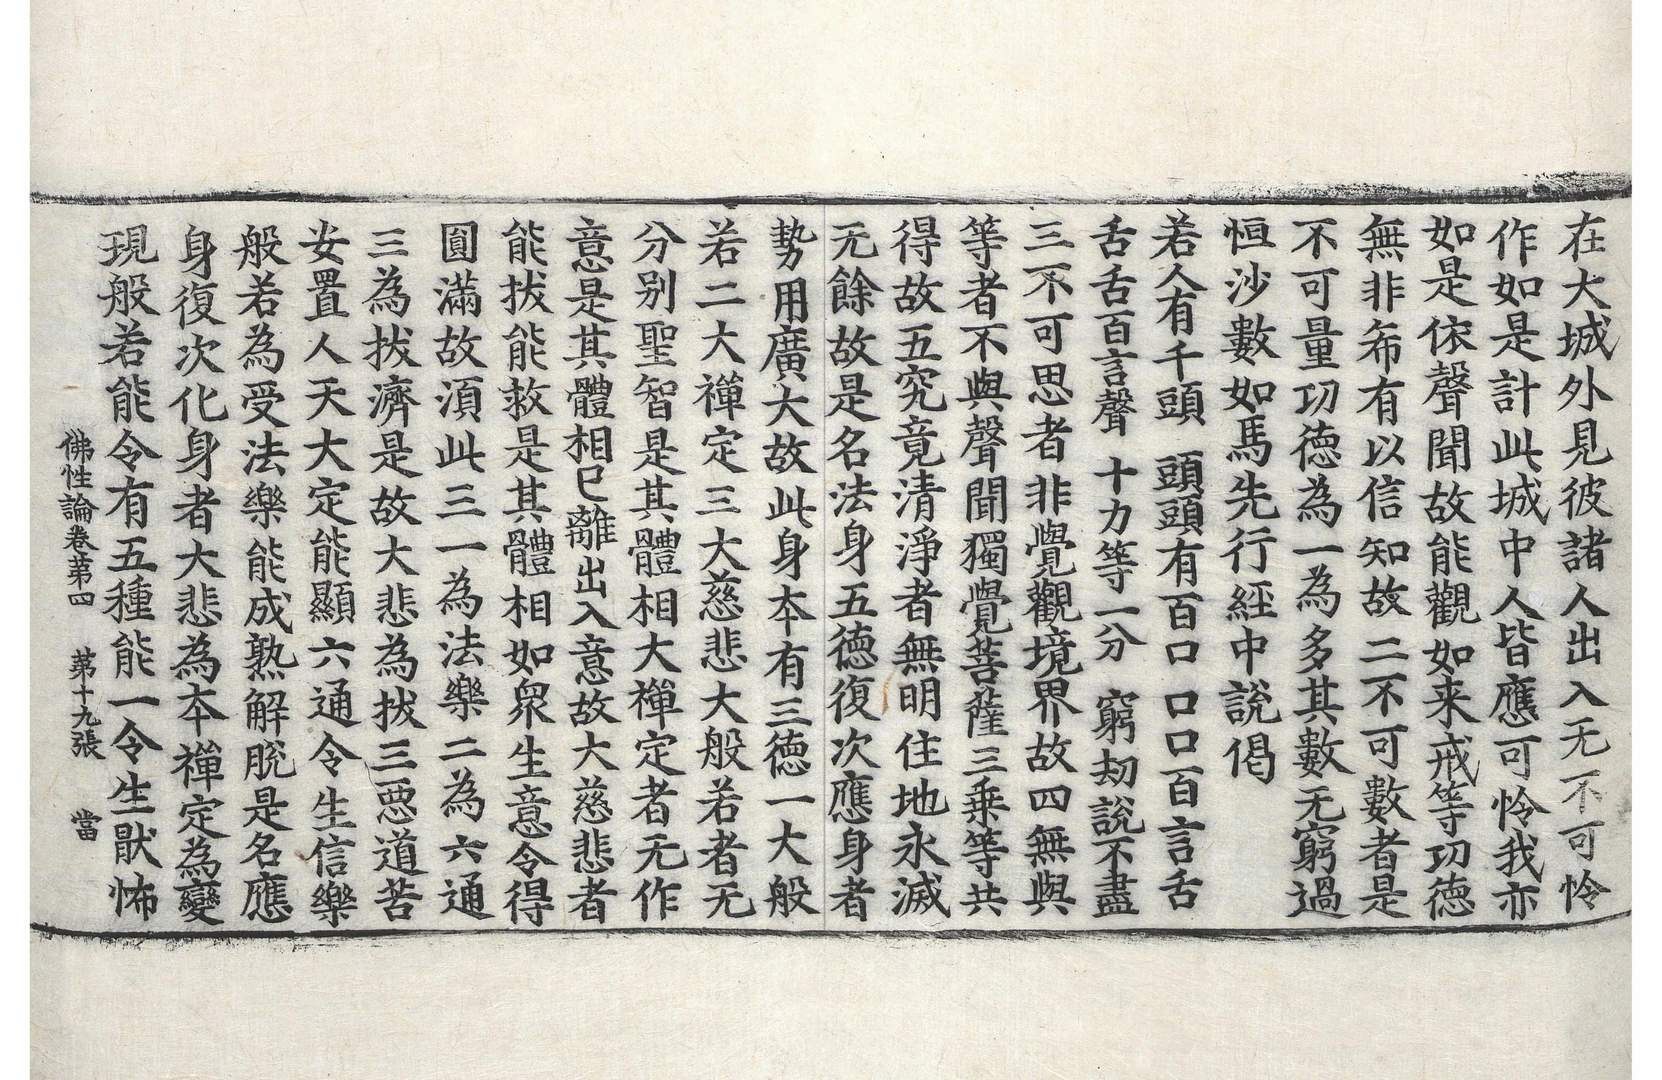 在大城外見彼諸人出入无不可怜
作如是計此城中人皆應可怜我亦
如是依聲聞故能觀如来戒等功德
無非希有以信知故二不可數者是
不可量功德為一為多其數无窮過
恒沙數如馬先行經中說偈
若人有千頭　頭頭有百口　口口百言舌
舌舌百言聲　十力等一分　窮劫說不盡
三不可思者非覺觀境界故四無與
等者不與聲聞獨覺菩薩三乗等共
得故五究竟清淨者無明住地永滅
无餘故是名法身五德復次應身者
勢用廣大故此身本有三德一大般
若二大禪定三大慈悲大般若者无
分别聖智是其體相大禪定者无作
意是其體相已離出入意故大慈悲者
能拔能救是其體相如衆生意令得
圓滿故湏此三一為法樂二為六通
三為拔濟是故大悲為拔三惡道苦
安置人天大定能顯六通令生信樂
般若為受法樂能成熟解脫是名應
身復次化身者大悲為本禪定為變
現般若能令有五種能一令生猒怖
佛性論卷苐四　苐十九張　當